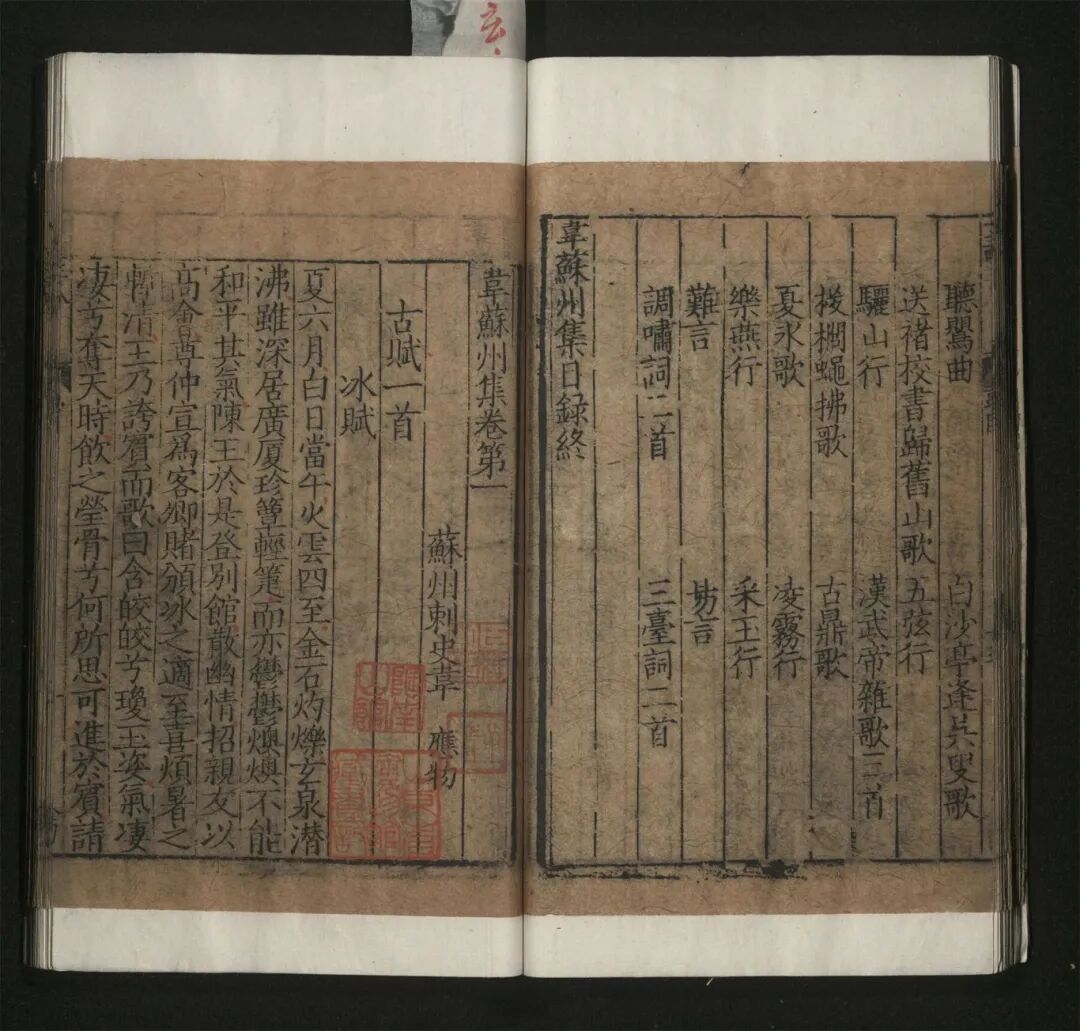 聽鸎曲 白沙亭逢吳叟歌
送褚校書歸舊山歌 五弦行
驪山行 漢武帝雜歌三首
椶櫚蠅拂歌 古鼎歌
夏氷歌 凌霧行
樂燕行 采玉行
難言 易言
調嘯詞二首 三臺詞二首
韋蘇州集目録終
韋蘇州集卷第一
蘇州刺史韋 應物
古賦一首
冰賦
夏六月白日當午火雲四至金石灼爍玄泉潛
沸雖深居廣厦珍簟輕箑而亦鬱鬱燠燠不能
和平其氣陳王於是登別館散幽情招親友以
高會尊仲宣爲客卿賭頒冰之適至喜煩暑之
暫清王乃誇賓而歌曰含皎皎兮瓊玉姿氣凄
凄兮奪天時飲之瑩骨兮何所思可進於賓請